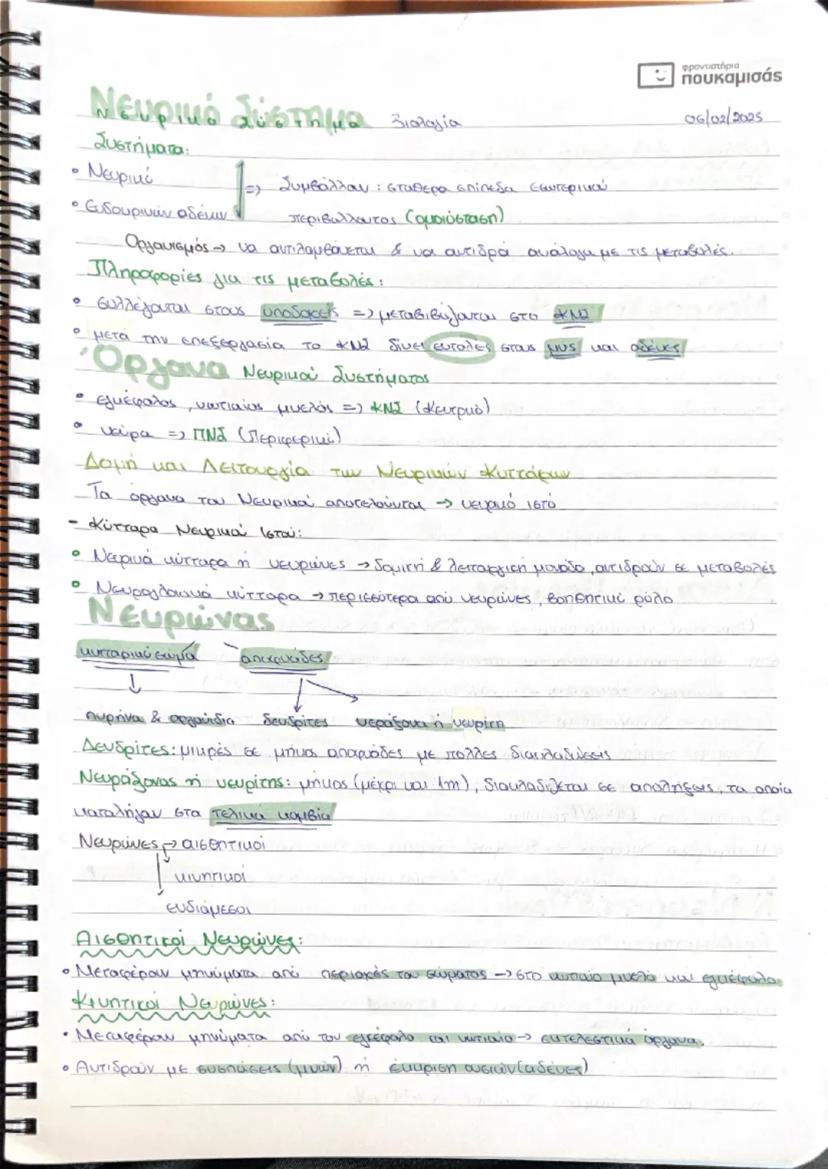 φροντιστήρια
πουκαμισάς
Νευρικό Σύστημα Βιολογία 06/02/2025
Συστήματα:
• Νευρικό
• Ενδοκρινών αδένων
=> Συμβάλλουν: σταθερά επίπεδα εσωτερικού
περιβάλλοντος (ομοιόσταση)
Οργανισμός → να αντιλαμβάνεται & να αντιδρά ανάλογα με τις μεταβολές.
Πληροφορίες για τις μεταβολές:
• συλλέγονται στους υποδοχείς => μεταβιβάζονται στο ΚΝΣ
• μετά την επεξεργασία το ΚΝΣ δίνει εντολές στους μυς και αδένες
Όργανα Νευρικού Συστήματος
• εγκέφαλος, νωτιαίος μυελός => ΚΝΣ (Κεντρικό)
• νεύρα => ΠΝΣ (Περιφερικό)
Δομή και Λειτουργία των Νευρικών Κυττάρων
Τα όργανα του Νευρικού αποτελούνται → νευρικό ιστό
- Κύτταρα Νευρικού Ιστού:
• Νευρικά κύτταρα ή νευρώνες → δομική & λειτουργική μονάδα, αντιδρούν σε μεταβολές
• Νευρογλοιακά κύτταρα → περισσότερα από νευρώνες, βοηθητικό ρόλο
Νευρώνας
κυτταρικό σώμα αποφυάδες
πυρήνα & οργανίδια δενδρίτες νευράξονα ή νευρίτη
Δενδρίτες: μικρές σε μήκος αποφυάδες με πολλές διακλαδώσεις
Νευράξονας ή νευρίτης: μήκος (μέχρι και 1m), διακλαδίζεται σε απολήξεις, τα οποία
καταλήγουν στα τελικά κομβία
Νευρώνες → αισθητικοί
κινητικοί
ενδιάμεσοι
Αισθητικοί Νευρώνες:
• Μεταφέρουν μηνύματα από περιοχές του σώματος → στο νωτιαίο μυελό και εγκέφαλο.
Κινητικοί Νευρώνες:
• Μεταφέρουν μηνύματα από τον εγκέφαλο και νωτιαίο → εκτελεστικά όργανα.
• Αντιδρούν με συσπάσεις (μυών) ή έκκριση ουσιών (αδένες)